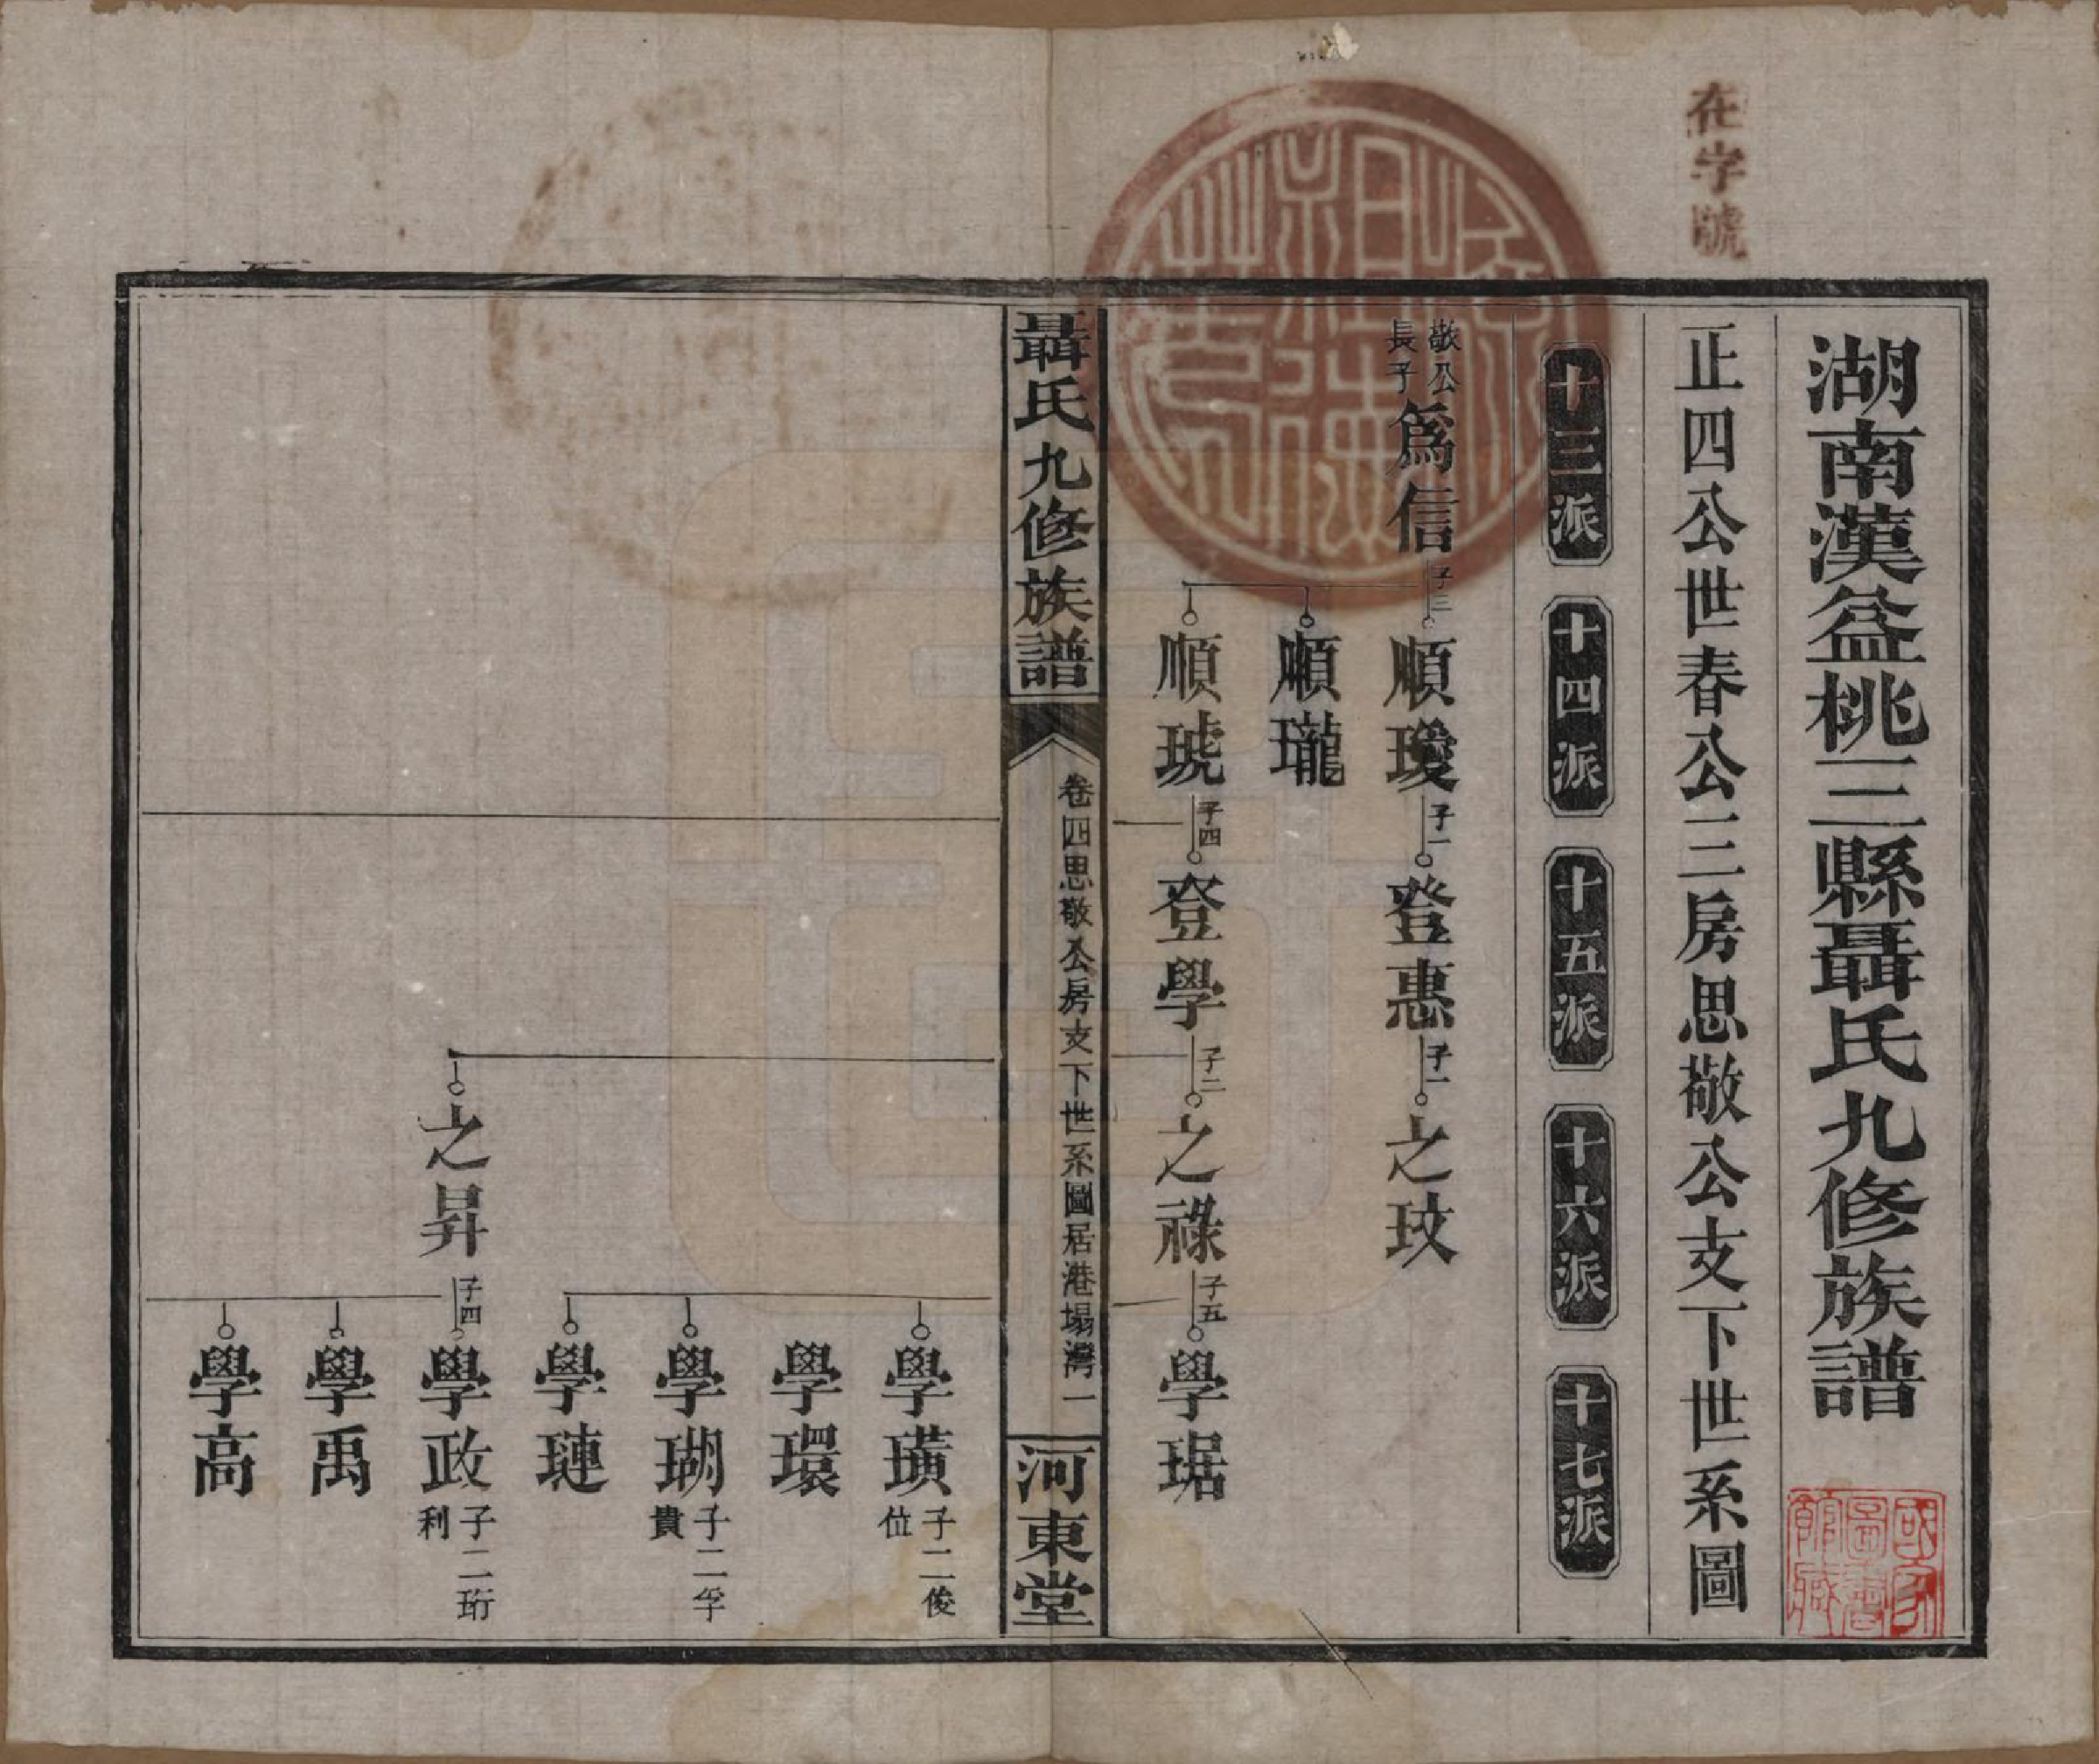 在字號
湖南漢益桃三縣聶氏九修族譜
正四公世春公三房思敬公支下世系圖
十三派
十四派
十五派
十六派
十七派
敬公長子
爲信
子三
順璦
子一
登惠
子一
之玟
順瓏
順琥
子四
登學
子二
之祿
子五
學琚
聶氏九修族譜
卷四思敬公房支下世系圖居港塌灣
一
河東堂
學璜
子二俊位
學環
學瑚
子二孚貴
學璉
之昇
子四
學政
子二珩利
學禹
學高
國家圖書館藏